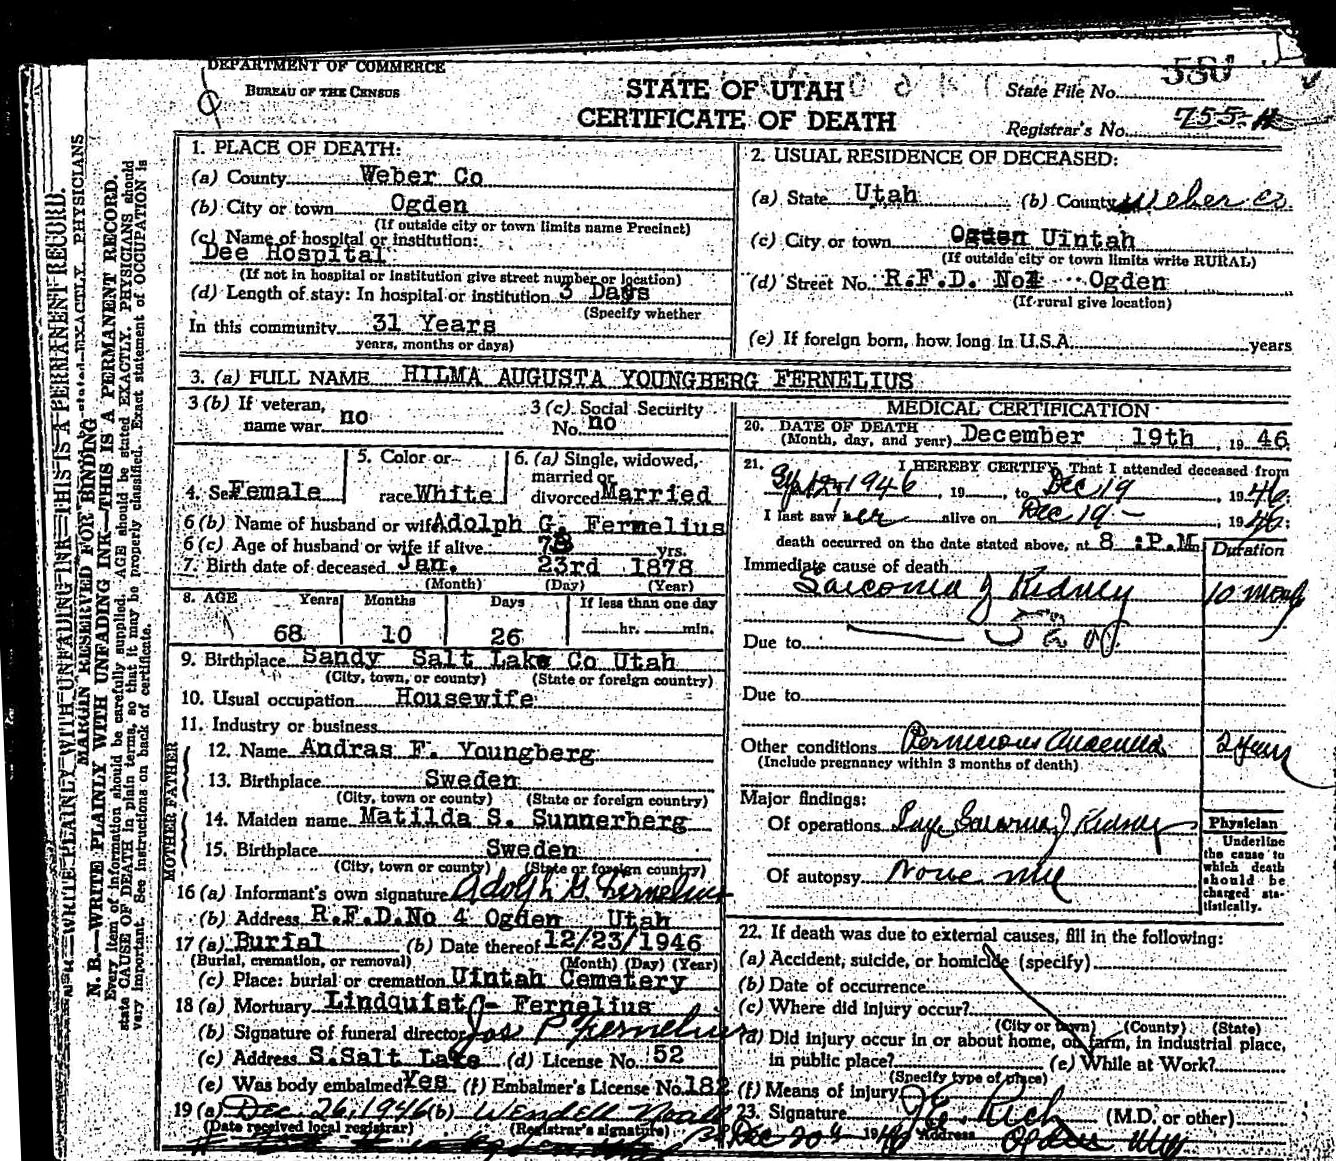 DEPARTMENT OF COMMERCE
BUREAU OF THE CENSUS
STATE OF UTAH
CERTIFICATE OF DEATH
State File No. 580
Registrar's No. 755-
MARGIN RESERVED FOR BINDING
N. B.—WRITE PLAINLY WITH UNFADING INK—THIS IS A PERMANENT RECORD.
Every item of information should be carefully supplied. AGE should be stated EXACTLY. PHYSICIANS should
state CAUSE OF DEATH in plain terms, so that it may be properly classified. Exact statement of OCCUPATION is
very important. See instructions on back of certificate.
1. PLACE OF DEATH:
(a) County Weber Co
(b) City or town Ogden
(If outside city or town limits name Precinct)
(c) Name of hospital or institution:
Dee Hospital
(If not in hospital or institution give street number or location)
(d) Length of stay: In hospital or institution 3 Days
(Specify whether
In this community 31 Years
years, months or days)
2. USUAL RESIDENCE OF DECEASED:
(a) State Utah (b) County Weber Co.
(c) City or town Ogden Uintah
(If outside city or town limits write RURAL)
(d) Street No. R.F.D. No4 Ogden
(If rural give location)
(e) If foreign born, how long in U.S.A. years
3. (a) FULL NAME HILMA AUGUSTA YOUNGBERG FERNELIUS
3 (b) If veteran, name war no
3 (c) Social Security No. no
4. Sex Female
5. Color or race White
6. (a) Single, widowed, married or divorced Married
6 (b) Name of husband or wife Adolph G. Fernelius
6 (c) Age of husband or wife if alive yrs.
7. Birth date of deceased Jan. 23rd 1878
(Month) (Day) (Year)
8. AGE Years Months Days If less than one day
68 10 26 hr. min.
9. Birthplace Sandy Salt Lake Co Utah
(City, town, or county) (State or foreign country)
10. Usual occupation Housewife
11. Industry or business
FATHER
12. Name Andras F. Youngberg
13. Birthplace Sweden
(City, town or county) (State or foreign country)
MOTHER
14. Maiden name Matilda S. Sunnerberg
15. Birthplace Sweden
(City, town or county) (State or foreign country)
16 (a) Informant's own signature Adolph G. Fernelius
(b) Address R.F.D.No 4 Ogden Utah
17 (a) Burial (b) Date thereof 12/23/1946
(Burial, cremation, or removal) (Month) (Day) (Year)
(c) Place: burial or cremation Uintah Cemetery
18 (a) Mortuary Lindquist - Fernelius
(b) Signature of funeral director Jos P Fernelius
(c) Address S.Salt Lake (d) License No. 52
(e) Was body embalmed Yes (f) Embalmer's License No. 182
19 (a) Dec. 26, 1946 (b) Wendell Noall
(Date received local registrar) (Registrar's signature)
MEDICAL CERTIFICATION
20. DATE OF DEATH
(Month, day, and year) December 19th, 1946
21. I HEREBY CERTIFY, That I attended deceased from
1946, 19, to Dec 19, 1946.
I last saw her alive on Dec 19 -, 1946;
death occurred on the date stated above, at 8 :P.M
Duration
Immediate cause of death
Sarcoma of Kidney 10 months
Due to
Due to
Other conditions Pernicious Anaemia 2 years
(Include pregnancy within 3 months of death)
Major findings:
Of operations Sarcoma of Kidney
Of autopsy None
Physician
Underline
the cause to
which death
should be
charged sta-
tistically.
22. If death was due to external causes, fill in the following:
(a) Accident, suicide, or homicide (specify)
(b) Date of occurrence
(c) Where did injury occur?
(City or town) (County) (State)
(d) Did injury occur in or about home, on farm, in industrial place,
in public place? (e) While at Work?
(Specify type of place)
(f) Means of injury
23. Signature Rich (M.D. or other)
Dec 20th 1946 Address Ogden Utah